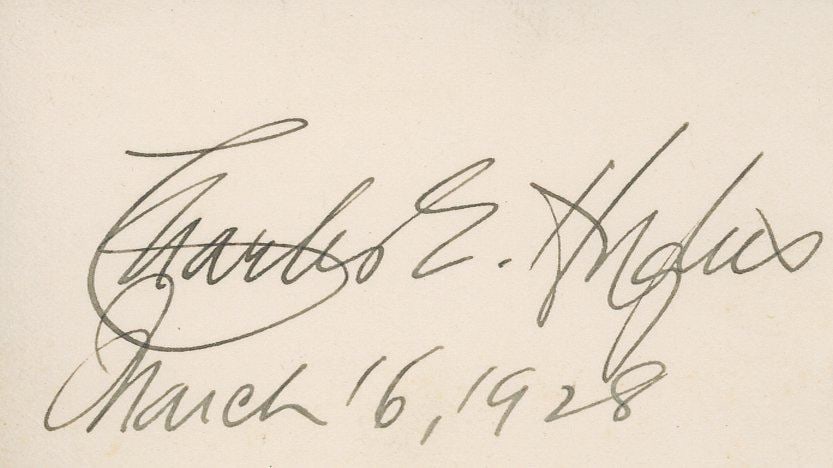 Charles E. Hughes
March 16, 1928